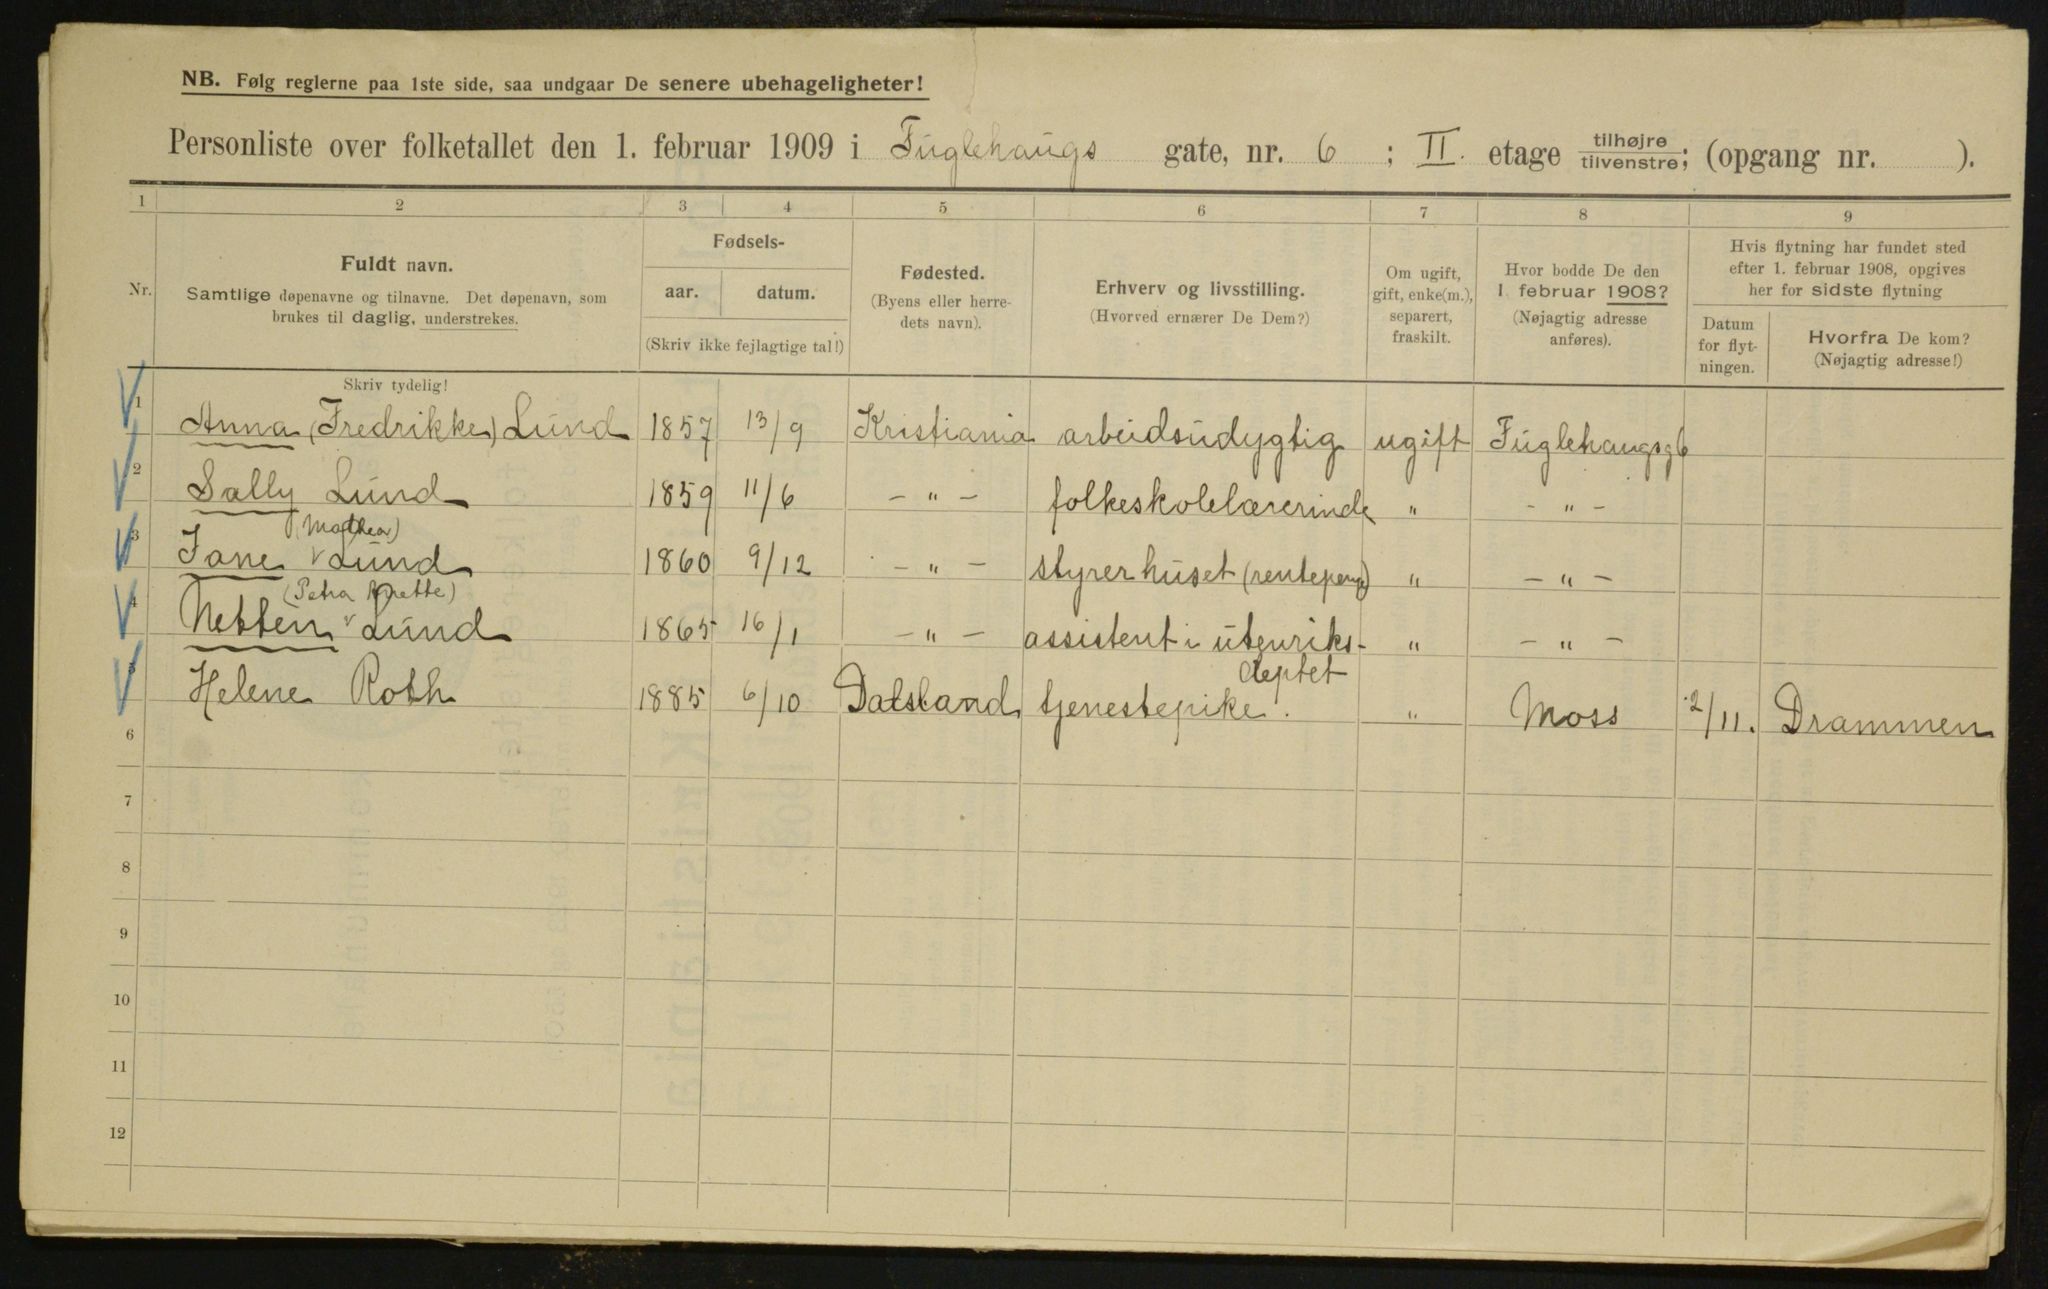 NB. Følg reglerne paa 1ste side, saa undgaar De senere ubehageligheter!
Personliste over folketallet den 1. februar 1909 i Fuglehaugs gate, nr. 6 ; II. etage tilhøjre tilvenstre; (opgang nr. ).
1 2 3 4 5 6 7 8 9
Nr.
Fuldt navn.
Samtlige døpenavne og tilnavne. Det døpenavn, som
brukes til daglig, understrekes.
Fødsels-
aar. datum.
(Skriv ikke fejlagtige tal!)
Fødested.
(Byens eller herre-
dets navn).
Erhverv og livsstilling.
(Hvorved ernærer De Dem?)
Om ugift,
gift, enke(m.),
separert,
fraskilt.
Hvor bodde De den
1. februar 1908?
(Nøjagtig adresse
anføres).
Hvis flytning har fundet sted
efter 1. februar 1908, opgives
her for sidste flytning
Datum
for flyt-
ningen.
Hvorfra De kom?
(Nøjagtig adresse!)
Skriv tydelig!
1 Anna (Fredrikke) Lund 1857 13/9 Kristiania arbeidsudygtig ugift Fuglehaugsg 6
2 Sally Lund 1859 11/6 - " - folkeskolelærerinde " - " -
(Mathea)
3 Jane v Lund 1860 9/12 - " - styrer huset (rentepeng) " - " -
(Petra Anette)
4 Netten v Lund 1865 16/1 - " - assistent i utenriks- " - " -
deptet
5 Helene Roth 1885 6/10 Dalsland tjenestepike. " Moss 2/11. Drammen
6
7
8
9
10
11
12